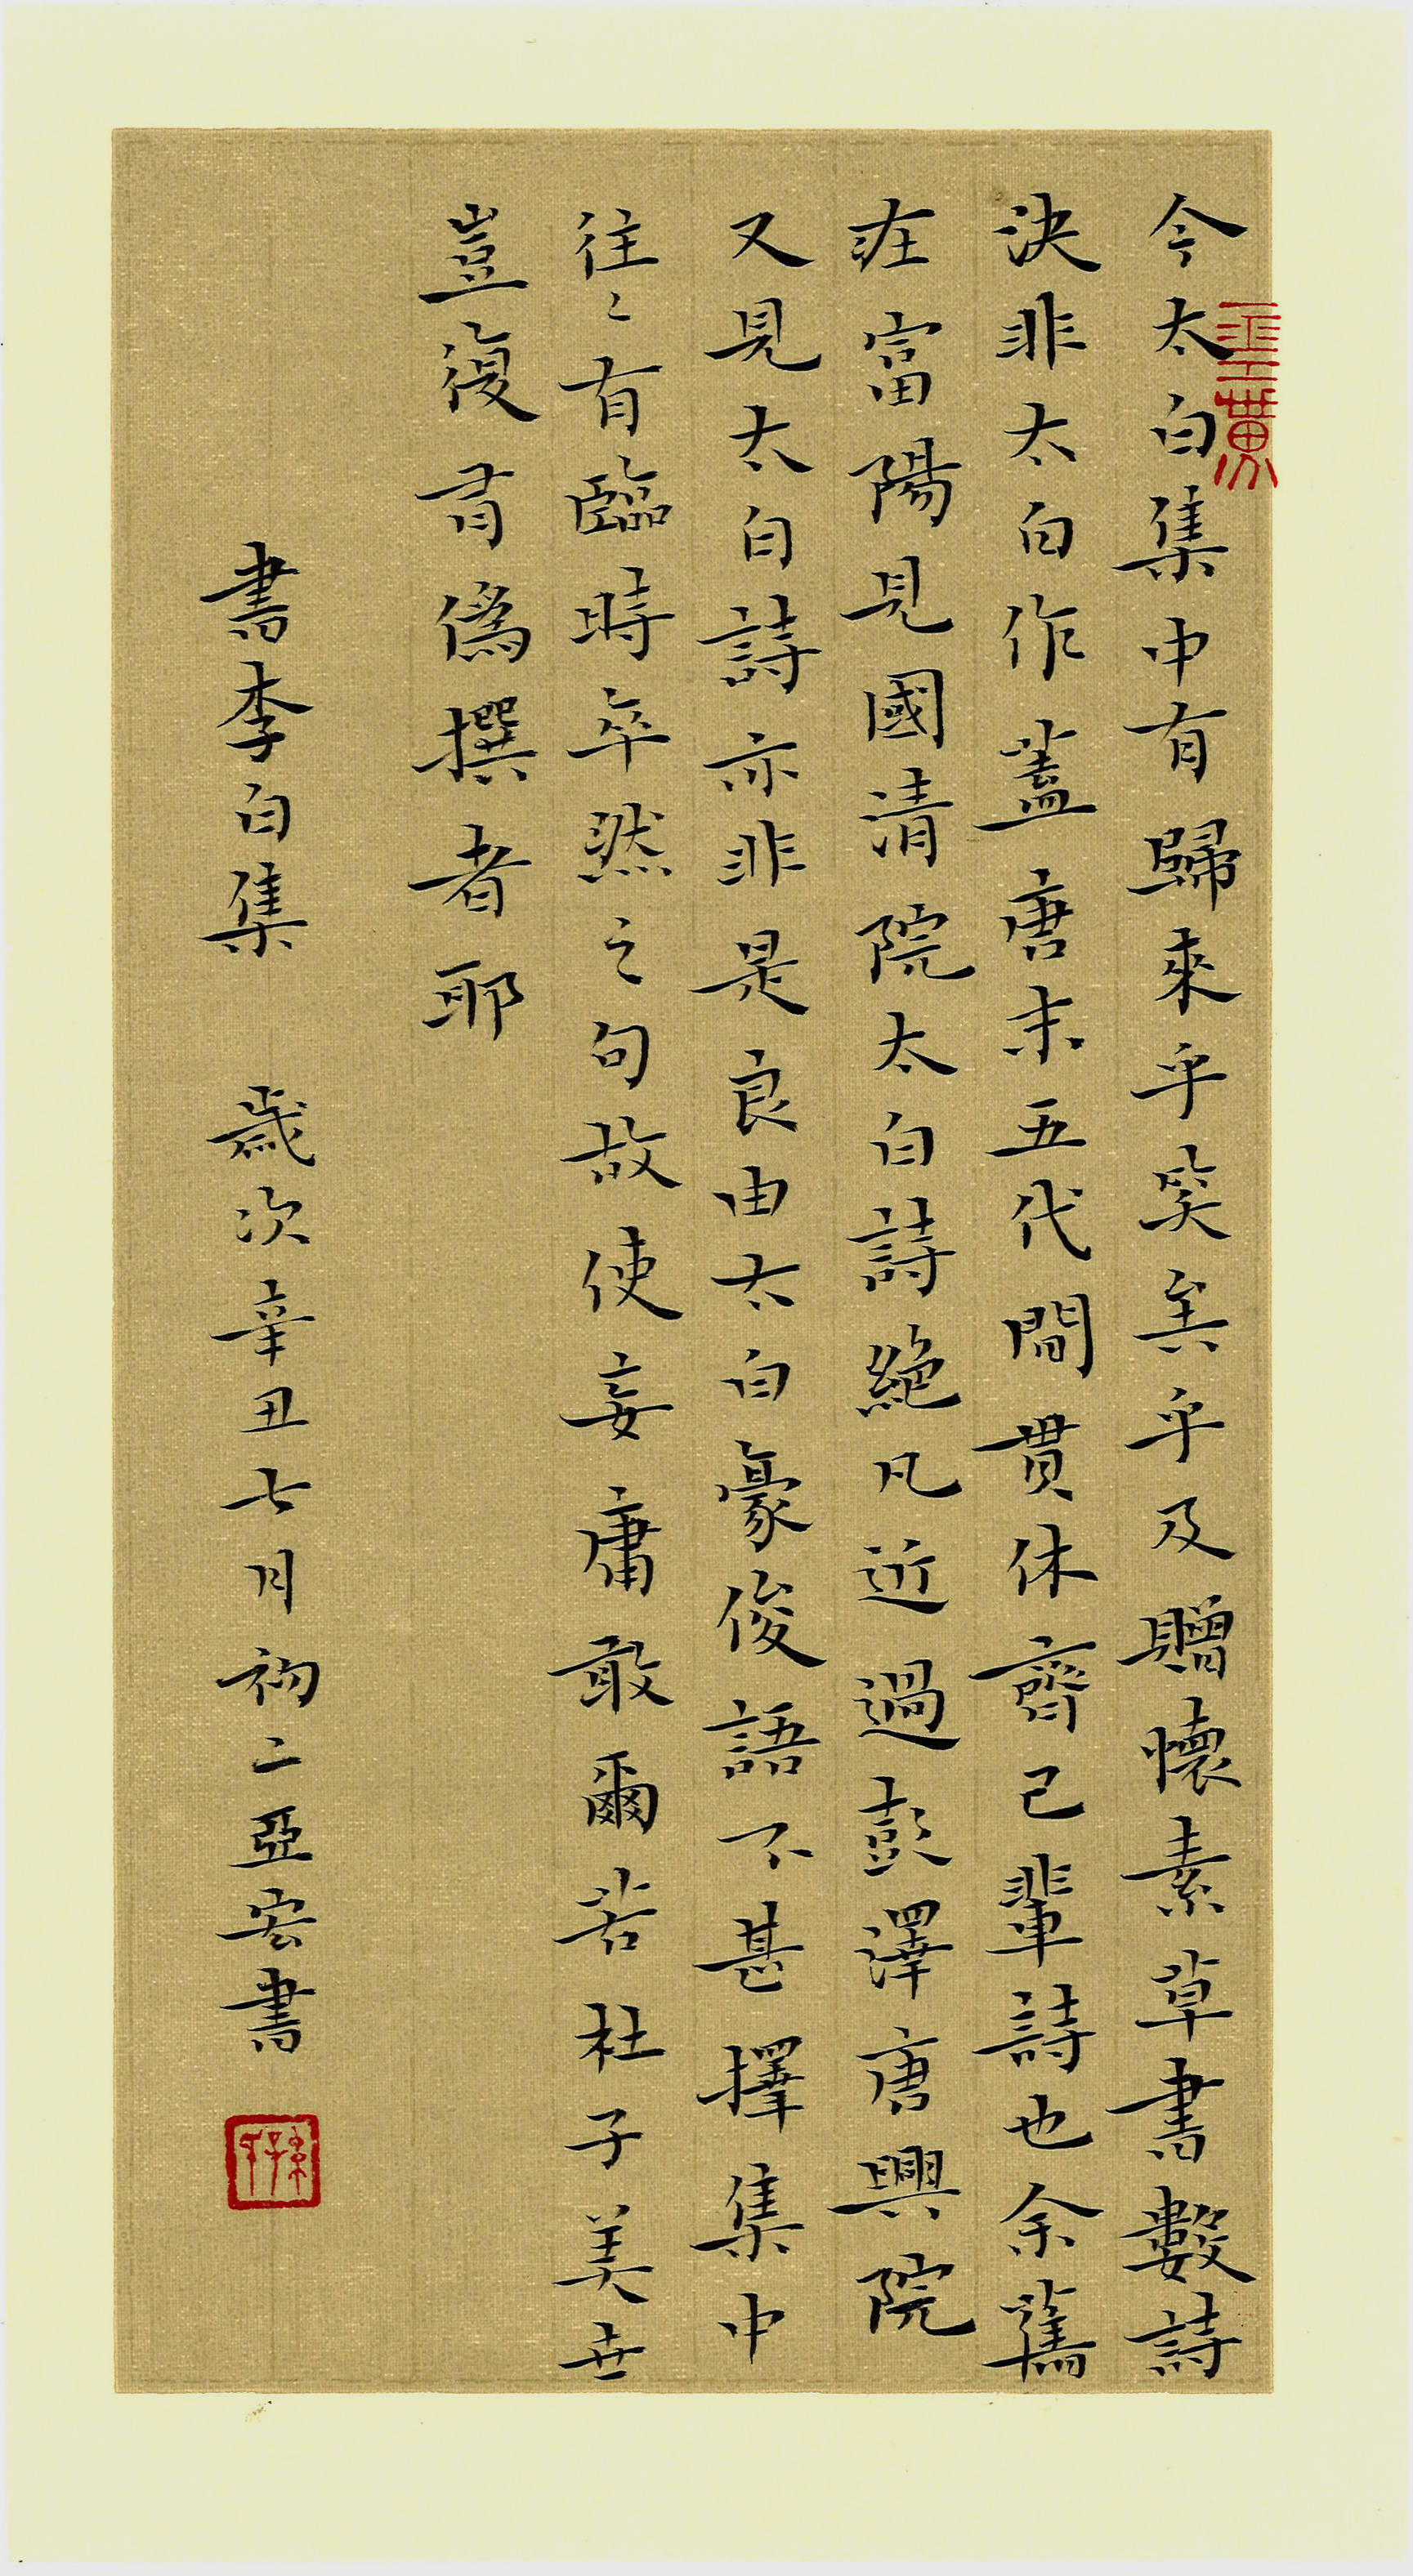 今太白集中有歸來乎笑矣乎及贈懷素草書數詩
決非太白作蓋唐末五代間貫休齊己輩詩也余舊
在富陽見國清院太白詩絕凡近過彭澤唐興院
又見太白詩亦非是良由太白豪俊語不甚擇集中
往〻有臨時卒然之句故使妄庸敢爾若杜子美世
豈復有偽撰者耶
書李白集 歲次辛丑七月初二亞宏書